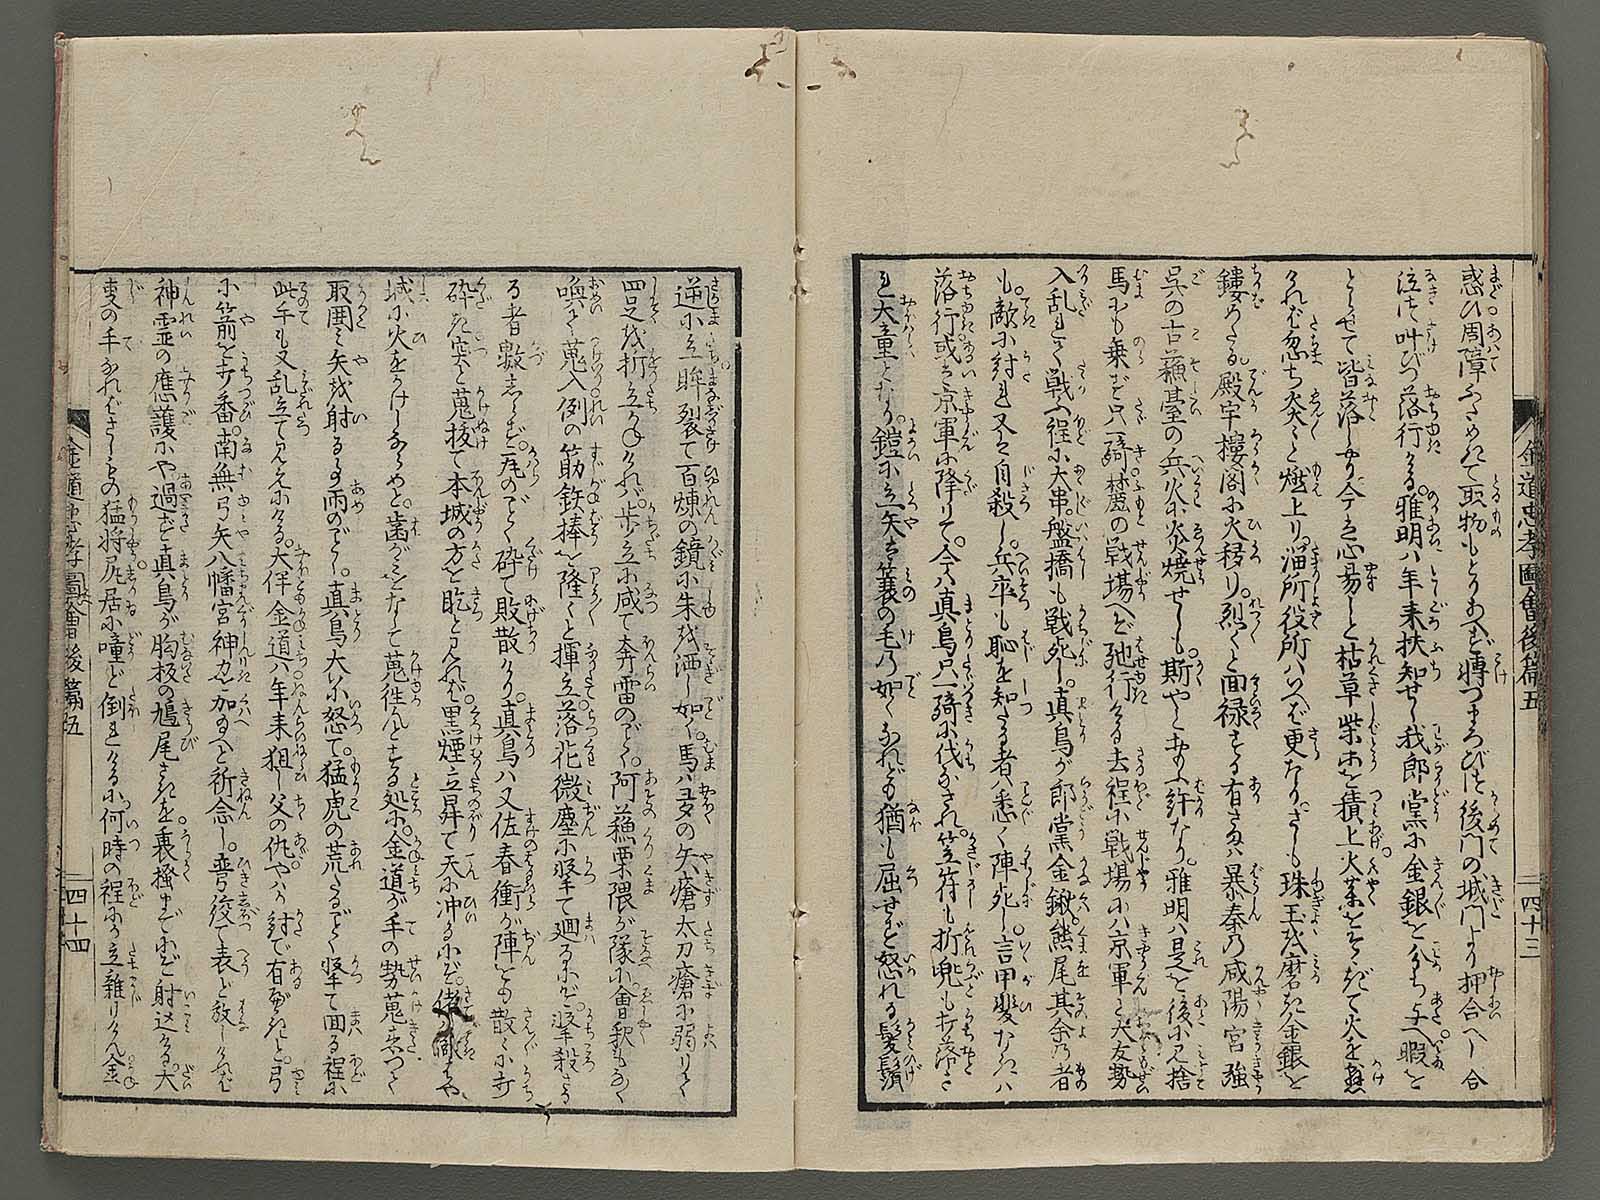 惑ひ周障ふためきて取物もとりあへず轉つまろびつ後門の城門より押合へし合
泣つ叫びつ落行ける雅明ハ年来扶知せし我郎黨に金銀を分ち与へ暇を
とらせて皆落しやり今ハ心易しと枯草柴等を積上火薬をそゝぎて火を懸
けれバ忽ち炎々と燃上り溜所役所ハいへバ更なりさしも珠玉を磨き金銀を
鏤めたる殿宇樓閣に火移り烈々と面禄する有さまハ暴秦の咸陽宮強
呉の古蘓臺の兵火に炎焼せしも斯やとおもふ許なり雅明ハ是を後に見捨
馬にも乗ず只一騎麓の戦場へぞ馳行ける去程に戦場にハ京軍と大友勢
入乱れて戦ふ程に大串盤橋も戦死し真鳥が郎黨金鍬熊尾其余の者
も敵に討れ又ハ自殺し兵卒も恥を知たる者ハ悉く陣死し言甲斐なきハ
落行或ハ京軍に降りて今ハ真鳥只一騎に伐なされ笠符も折兜も打落さ
れ大童となり鎧に立矢ハ簑の毛の如くなれども猶も屈せず怒れる髪鬚
金道忠孝圖會後篇五
四十三
逆に立眸裂て百煉の鏡に朱を洒し如く馬ハ多の矢瘡太刀瘡に弱りて
四足を折立かねけれバ歩立に成て奔雷のごとく阿蘓栗隈が隊に會釈もなく
喚て蒐入例の筋鉄棒を隆々と揮立落花微塵に撃て廻るにぞ撃殺さる
る者數しらず瓦のごとく砕て敗散けり真鳥ハ又佐春衝が陣をも散々に打
砕き突と蒐抜て本城の方を眺と見れバ黒煙立昇て天に冲るにぞ
城に火をかけしならめと歯がみをなして蒐徃んとする処に金道が手の勢蒐来つて
取囲ミ矢を射る事雨のごとし真鳥大に怒て猛虎の荒たるごとく撃て面る程に
此手も又乱立て見えにける大伴金道ハ年来狙し父の仇やハか討で有べきと弓
に箭を打番南無弓矢八幡宮神力を加へ給へと祈念し弯絞て表ど發しけれバ
神霊の應護にや過ず真鳥が胸板の鳩尾さきを裏掻までにぞ射込ける大
事の手なれバさしもの猛将尻居に噇ど倒れけるに何時の程にか立離りけん金
金道忠孝圖會後篇五
四十四